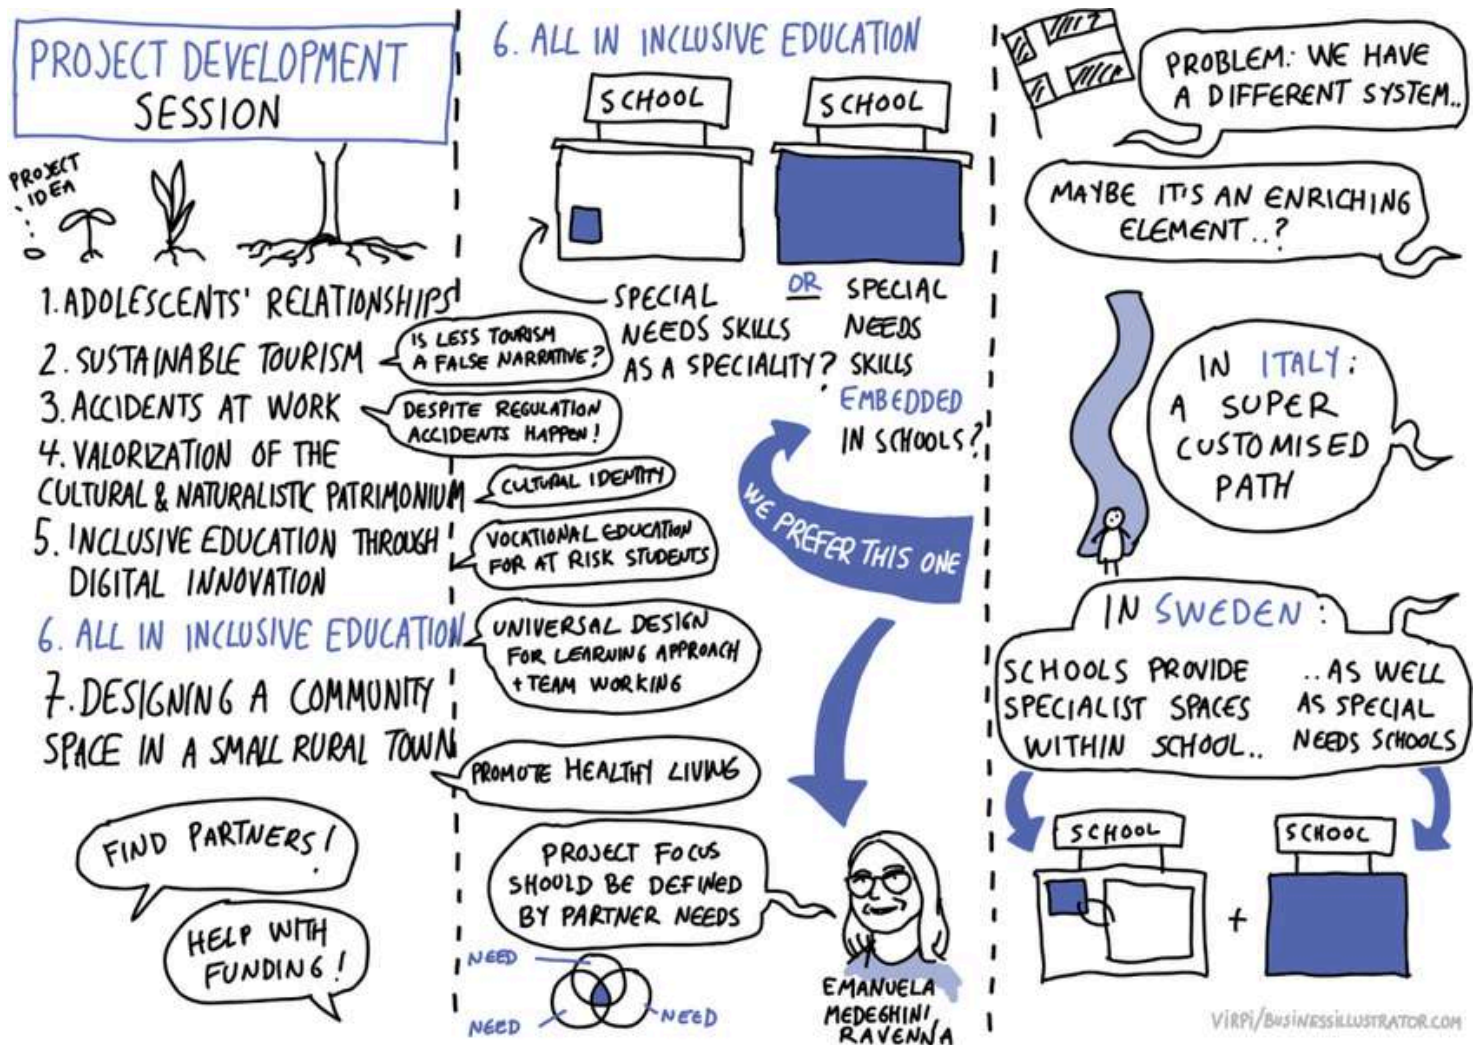 PROJECT DEVELOPMENT
SESSION
PROJECT
IDEA
1. ADOLESCENTS' RELATIONSHIPS
2. SUSTAINABLE TOURISM
IS LESS TOURISM
A FALSE NARRATIVE?
3. ACCIDENTS AT WORK
DESPITE REGULATION
ACCIDENTS HAPPEN!
4. VALORIZATION OF THE
CULTURAL & NATURALISTIC PATRIMONIUM
CULTURAL IDENTITY
5. INCLUSIVE EDUCATION THROUGH
DIGITAL INNOVATION
VOCATIONAL EDUCATION
FOR AT RISK STUDENTS
6. ALL IN INCLUSIVE EDUCATION
UNIVERSAL DESIGN
FOR LEARNING APPROACH
+ TEAM WORKING
7. DESIGNING A COMMUNITY
SPACE IN A SMALL RURAL TOWN
PROMOTE HEALTHY LIVING
FIND PARTNERS!
HELP WITH
FUNDING!
6. ALL IN INCLUSIVE EDUCATION
SCHOOL
SCHOOL
SPECIAL
NEEDS SKILLS
AS A SPECIALITY?
OR SPECIAL
NEEDS
SKILLS
EMBEDDED
IN SCHOOLS?
WE PREFER THIS ONE
PROJECT FOCUS
SHOULD BE DEFINED
BY PARTNER NEEDS
NEED
NEED
NEED
EMANUELA
MEDEGHINI
RAVENNA
PROBLEM: WE HAVE
A DIFFERENT SYSTEM..
MAYBE IT'S AN ENRICHING
ELEMENT..?
IN ITALY:
A SUPER
CUSTOMISED
PATH
IN SWEDEN:
SCHOOLS PROVIDE
SPECIALIST SPACES
WITHIN SCHOOL..
..AS WELL
AS SPECIAL
NEEDS SCHOOLS
SCHOOL
+
SCHOOL
VIRPI/BUSINESSILLUSTRATOR.COM